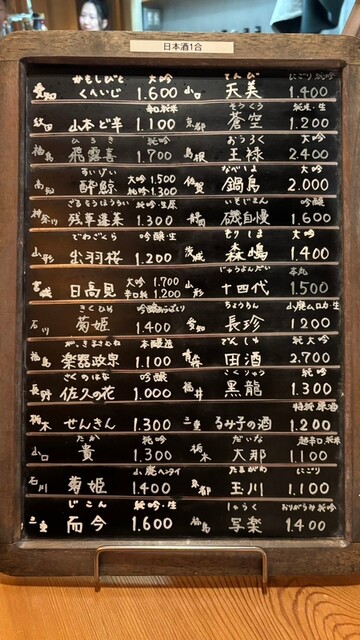 日本酒1合
かもしびと 大吟
愛知 くへいじ 1.600
辛口純米
秋田 山本ど辛 1.100
ひろき 純吟
福島 飛露喜 1.700
すいげい
高知 酔鯨 大吟 1.500 純吟 1.300
ざるそうほうらい 純吟・生原
神奈川 残草蓬莱 1.300
でわざくら 吟醸・生
山形 出羽桜 1.200
宮城 日高見 大吟 1.700 辛口純 1.200
きくひめ
石川 菊姫 1.400
がっきまさむね 本醸造
福島 楽器政宗 1.100
さくのはな 吟醸
長野 佐久の花 1.000
栃木 せんきん 1.300
たか 純吟
山口 貴 1.300
山廃
石川 菊姫 1.400
じこん 純吟・生
三重 而今 1.600
てんび にごり純吟
山口 天美 1.400
そうくう 純米・生
京都 蒼空 1.200
おうろく 大吟
島根 王祿 2.400
なべしま 大吟
佐賀 鍋島 2.000
いそじまん 吟醸
静岡 磯自慢 1.600
もりしま 大吟
茨城 森嶋 1.400
じゅうよんだい 本丸
山形 十四代 1.500
ちょうちん 山廃ムロカ・生
愛知 長珍 1200
でんしゅ 純大吟
青森 田酒 2.700
こくりゅう 純吟
福井 黒龍 1.300
特純 原酒
三重 るみ子の酒 1.200
だいな 超辛口.純米
栃木 大那 1.100
たまがわ にごり
京都 玉川 1.100
しゃらく おりがらみ純吟
福島 写楽 1.400